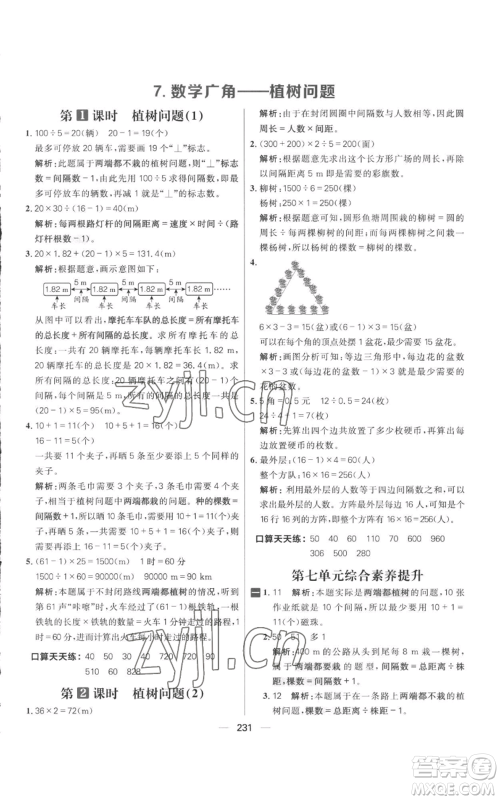 7. 数学广角——植树问题
第1课时 植树问题(1)
1. 100÷5=20(辆) 20-1=19(个)
解析:此题属于两端都不栽的植树问题,则“⊥”标志
数=间隔数-1。由此先用 100÷5 求得间隔数,即可
停放自行车的车辆数,再减去 1 就可求得“⊥”标志的
个数。
2. 20×30÷(16-1)=40(m)
解析:每两根路灯杆的间隔距离=速度×时间÷(路
灯杆根数-1)。
3. 20×1.82+5×(20-1)=131.4(m)
解析:根据题意,画示意图如下:
5 m 5 m 5 m
1.82 m 1.82 m 1.82 m
车长 间隔 车长 间隔 车长
从图中可以看出,摩托车车队的总长度=所有摩托车
的总长度+所有间隔的总长度。因为每辆摩托车长
1.82 m,所以 20 辆摩托车长 1.82×20=36.4(m)。
求所有间隔的总长度:20 辆摩托车之间有(20-1)个
间隔,每个间隔是 5 m,所有间隔的总长度是 5×
(20-1)=95(m)。
4. 10+1=11(个) 10+5+1=16(个)
16-11=5(个)
一共要夹 11 个夹子,一共要夹 16 个夹子,还需要 5 个
夹子。
解析:两条毛巾需要 3 个夹子,三条毛巾需要 4 个夹
子,相当于植树问题中两端都栽的情况。种的棵数=
间隔数+1,即晒 10 条毛巾,需要 10+1=11(个)夹
子,再晒 5 条毛巾,一共需要 10+5+1=16(个)夹子,
还需要 16-11=5(个)夹子。
5. 1500÷(61-1)=25(m) 1时=60分
1500×60=90000(m) 90000 m=90 km
解析:本题属于不封闭路线两端都植树的情况,所以
听到第 61 声“咔嚓”时,火车行了(61-1)根铁轨,一
根铁轨的长度=火车 1 分钟走过的路程÷根数,火车
每小时走过的路程=火车每分钟走过的路程×时间。
口算天天练: 40 50 30 40 720 920 90
60 40 510 620 828
第2课时 植树问题(2)
1. 36×2=72(m)
解析:由于在封闭圆圈中间隔数与人数相等,因此圆
圈周长=人数×间距。
2. (300+200)×2÷5=200(盏)
解析:先求出这个长方形广场的周长,再用周长÷间
隔距离=盏数。
3. 柳树:1500÷6=250(棵)
杨树:250×1=250(棵)
解析:柳树的棵数,即圆形鱼池周围栽的柳树棵数=
周长÷间隔距离;每两棵柳树之间栽 1 棵杨树,所以
杨树的棵数与柳树的棵数相等。
4.
6×3-3=15(盆) (6-1)×3=15(盆)
可以在每个角的顶点处摆 1 盆花。
解析:花的总盆数=等边三角形中,每边花的盆数×
3-3,或花的总盆数=(每边花的盆数-1)×3。
5. 5角=0.5元 12÷0.5=24(枚)
24÷4+1=7(枚)
解析:先算出四边一共放了多少枚硬币,再算出每边
放置硬币的枚数。
6. 最外层:(16-1)×4=60(人)
方阵:16×16=256(人)
解析:利用最外层的人数等于四边间隔数的和求出最
外层的人数。方阵每边站 16 人,即可以求出 16 个
16 行列,一共有 16×16=256(人)。
口算天天练: 60 90 640 250 960
306 500 280
第七单元综合素养提升
一 1. 11 解析:本题实际是两端都植树的问题,10 张
作业纸就是 10 个间隔,需要用 10+1=
11(枚)磁珠。
2. 50 51 多1
解析:400 m 就是全长,要求一共栽多少棵树,
其实属于两端都要栽的题型,间隔数=总距离÷
间隔距离,棵数=间隔数+1。
3. 12 解析:本题属于在一条路上两端都不栽的植
树问题,棵数=总距离÷间隔距离-1。
231
zyjl.cn
zyjl.cn
答案圈
MXQE.COM